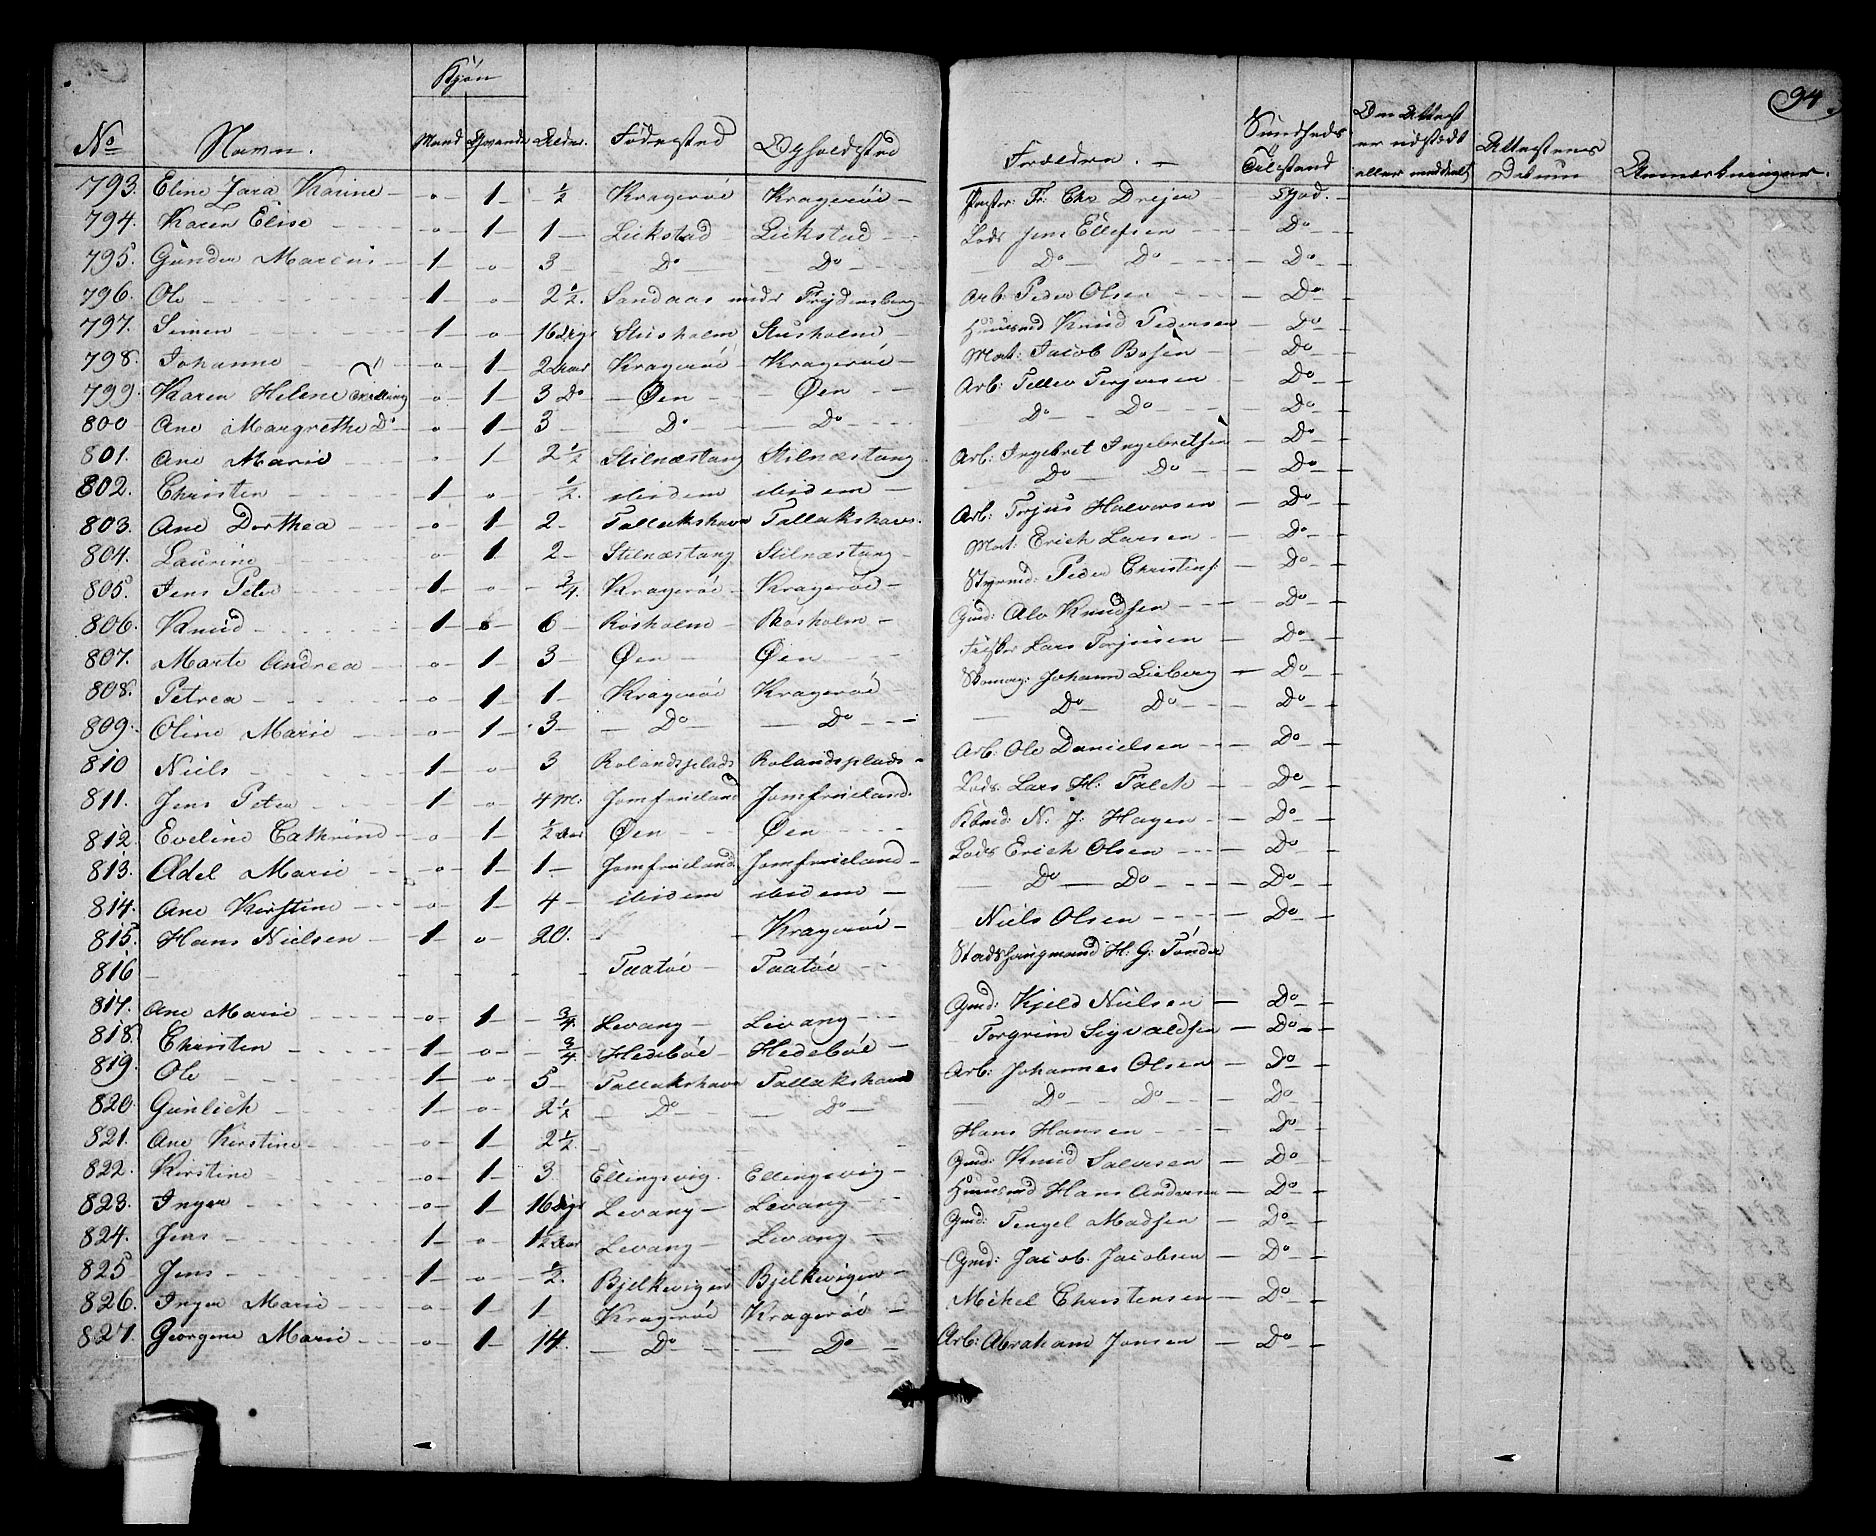 94
Kjön
No Navn. Mand Qvinde Alder. Fødested Opholdsted Forældre. Sundheds Tilstand Om Attest er udstædt eller meddeelt Attestens Datum Anmærkninger.
793. Eline Zara Karine - o - 1 - ½ Krageröe Krageröe - Fr. Chr. Drejer God.
794. Karen Elise o 1 1 Leikstad Leikstad Lods Jens Ellefsen Do
795. Gunder Marius 1 o 3 Do Do Do Do Do
796. Ole 1 o 2½. Sandaas under Frydensberg Arb: Peder Olsen Do
797. Simen 1 o 16 Dge Stusholm Stusholm Huusmd Knud Pedersen Do
798. Johanne o 1 2 Aar Krageröe Krageröe Mat: Jacob Bosen Do
799. Karen Helene Tvilling o 1 3 Do Øen Øen Arb: Tellev Terjersen Do
800 Ane Margrethe Do o 1 3 Do Do Do Do Do
801. Ane Marie o 1 2½ Stilnæstang Stilnæstang Arb: Ingebret Ingebretsen Do
802. Christen 1 o ½. ibidem ibidem Do Do Do
803. Ane Dorthea o 1 2 Tallakshavn Tallakshavn Arb: Torjus Halvorsen Do
804. Laurine o 1 2 Stilnæstang Stilnæstang Mat: Erich Larsen Do
805. Jens Peter 1 o ¾. Krageröe Krageröe Styrmd: Peder Christens: Do
806. Knud 1 o 6 Rösholm Rösholm Gmd: Alv Knudsen Do
807. Marte Andrea o 1 3 Øen Øen Fisker Lars Torjusen Do
808. Petrea o 1 1 Kragerøe Kragerøe Skomag: Johann Lieberg Do
809. Oline Marie o 1 3 Do Do Do Do Do
810 Niels 1 o 3 Rolandsplads Rolandsplads Arb: Ole Danielsen Do
811. Jens Peter 1 o 4 M: Jomfrueland Jomfrueland. Lods Lars H: Falck Do
812. Eveline Cathrine o 1 ½ Aar Øen Øen Kbmd: N: J: Hagen Do
813. Adel Marie o 1 1 Jomfrueland Jomfrueland Lods Erich Olsen Do
814. Ane Kirstine o 1 4 ibidem ibidem Do Do Do
815. Hans Nielsen 1 o 20. Kragerøe Niels Olsen Do
816 Taatöe Taatöe H: G: Tönder
817. Ane Marie o 1 ¾ Levang Levang Gmd: Kjeld Nielsen Do
818. Christen 1 o ¾ Hedebøe Hedebøe Torgrim Sigvaldsen Do
819. Ole 1 o 5 Tallakshavn Tallakshavn Arb: Johannes Olsen Do
820. Gunlich 1 o 2½ Do Do Do Do Do
821. Ane Kirstine o 1 2½ Hans Hansen Do
822. Kirstine o 1 3 Ellingsvig. Ellingsvig Gmd: Knud Salvesen Do
823. Inger o 1 16 Dge Levang Levang Huusmd Hans Andersen Do
824. Jens 1 o 1½ Aar Levang Levang Gmd: Tengel Madsen Do
825 Jens 1 o ½. Bjelkevigen Bjelkevigen Gmd: Jacob Jacobsen Do
826. Inger Marie o 1 1 Kragerøe Kragerøe Mikel Christensen Do
827. Georgene Marie o 1 14. Do Do Arb: Abraham Jonsen Do